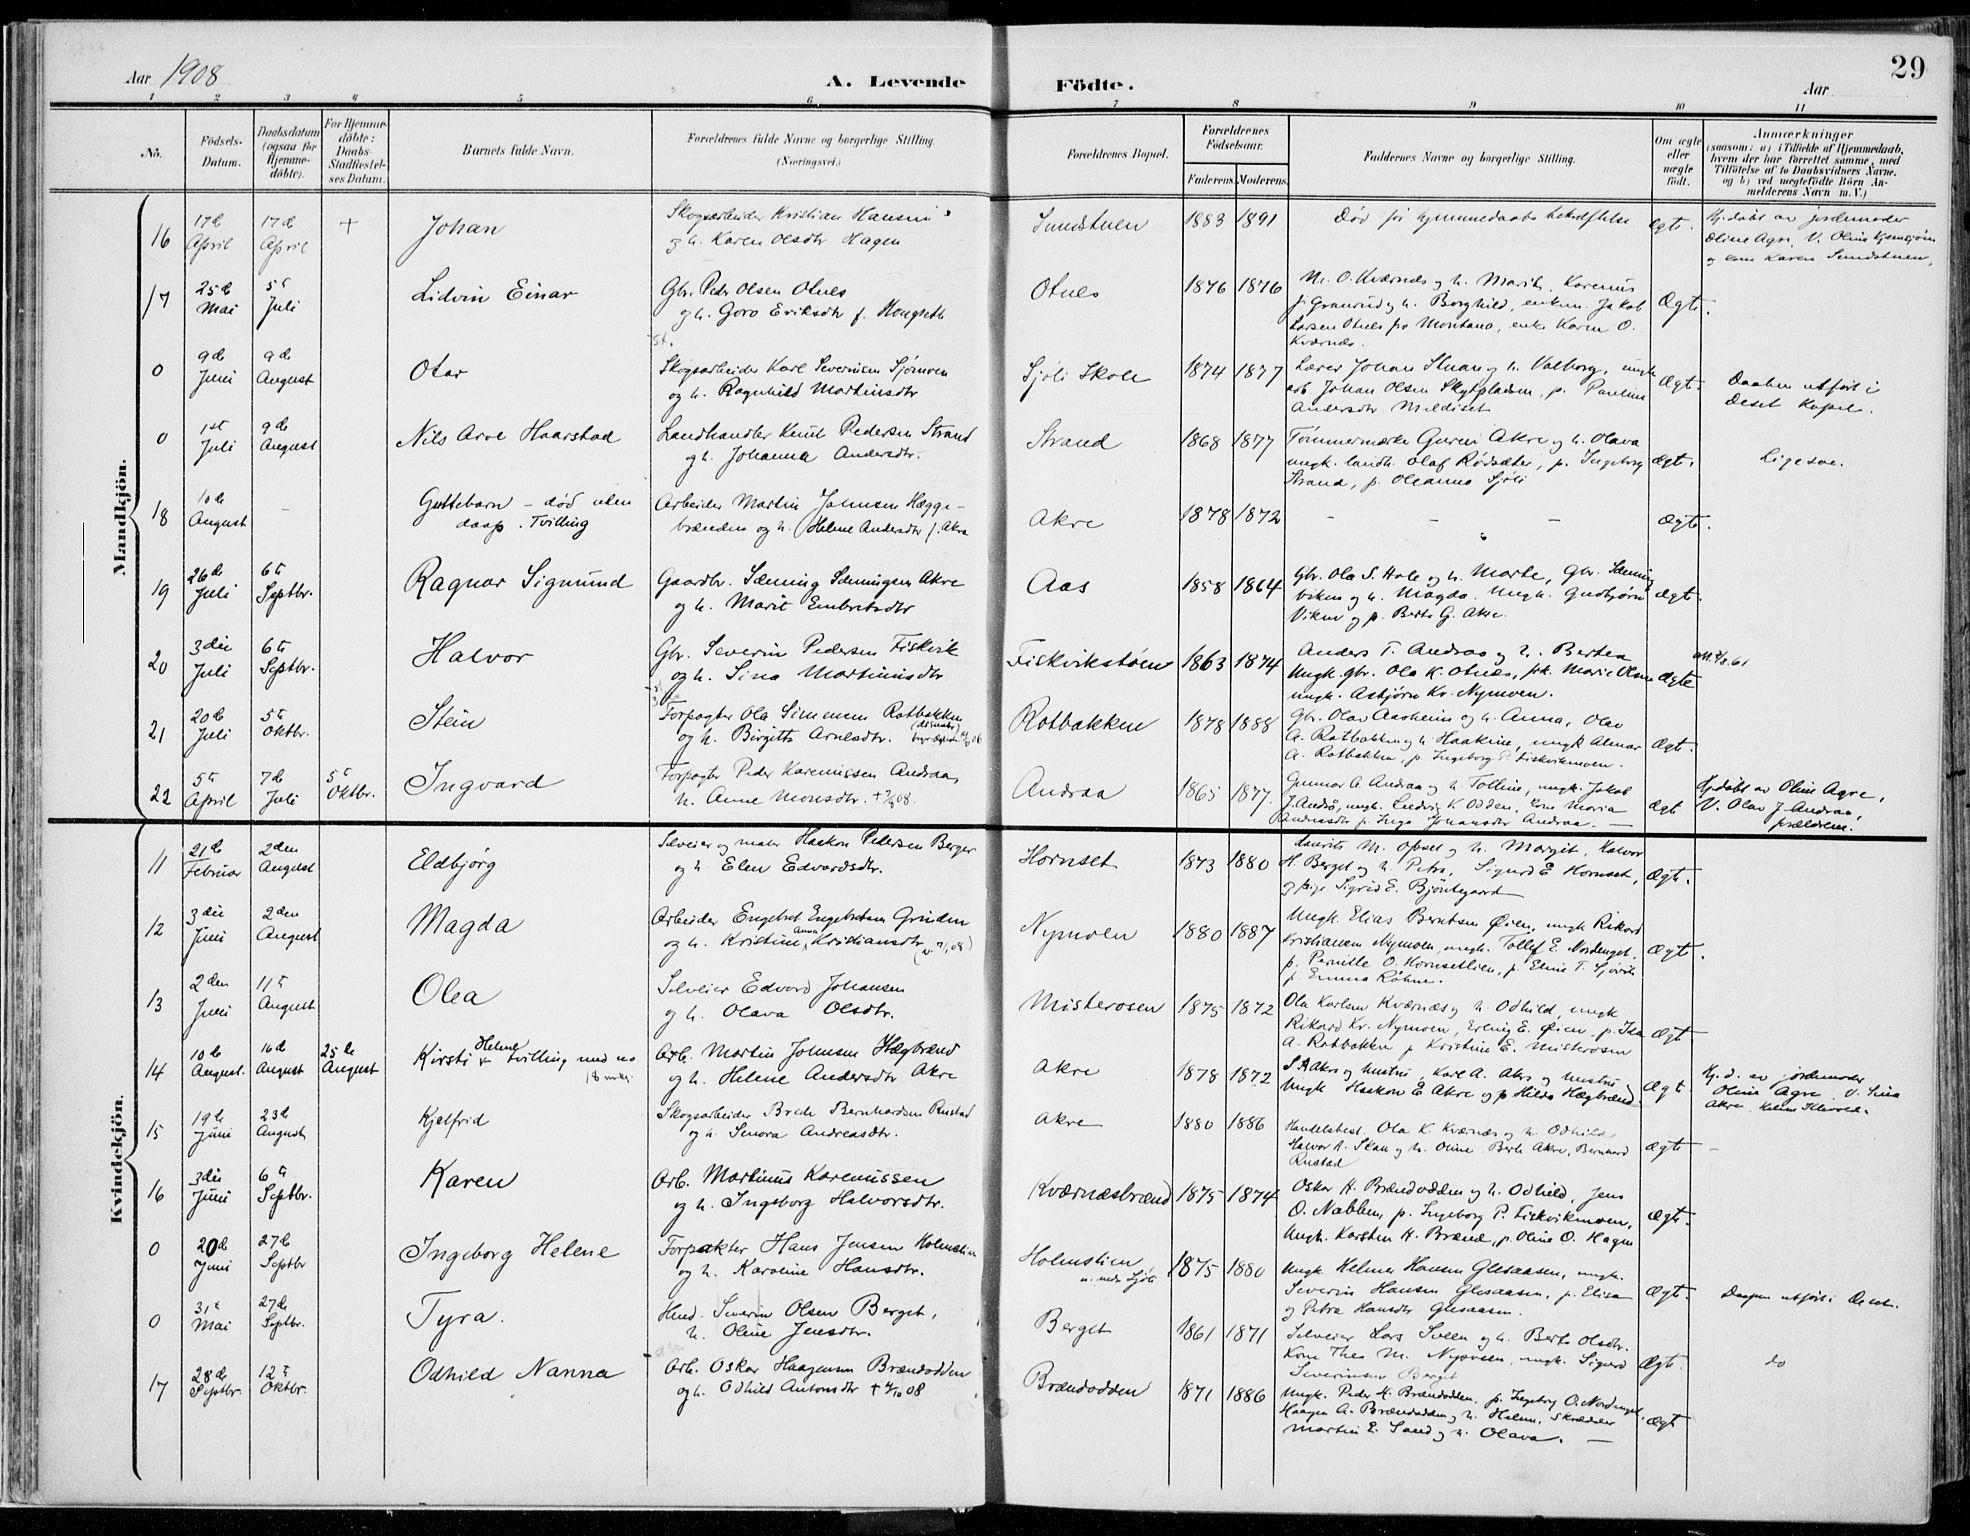 Aar 1908
A. Levende Födte.
Aar
29
1 2 3 4 5 6 7 8 9 10 11
No.
Födsels-Datum.
Daabsdatum (ogsaa for Hjemme-döbte).
For Hjemme-döbte: Daabs-Stadfæstel-ses Datum.
Barnets fulde Navn.
Forældrenes fulde Navne og borgerlige Stilling. (Næringsvei.)
Forældrenes Bopæl.
Forældrenes Födselsaar.
Faderens. Moderens.
Faddernes Navne og borgerlige Stilling.
Om ægte eller uægte födt.
Anmærkninger (saasom: a) i Tilfælde af Hjemmedaab, hvem der har forrettet samme, med Tilföielse af to Daabsvidners Navne, og b) ved uægtefödte Börn An-melderens Navn m. V.)
Mandkjön.
16 17de April 17de April + Johan
Skogsarbeider Kristian Hansen
og h. Karen Olsdtr Hagen
Sundstuen 1883 1891 Død før hjemmedaabs bekræftelse ægte.
Hj. døbt av jordemoder
Oline Agre, V. Oline
og kone Karen Sundstuen,
17 25de Mai 5te Juli Lidvin Einar
Gbr. Peder Olsen Otnes
og h. Goro Eriksdtr f. Hougseth
Otnes 1876 1876
M. O. Kværnæs og h. Marit, Karenus
J. Granrud og h. Borghild, enkem. Jakob
Larsen Otnes fra Montana, enke Karen O.
Kværnæs.
Ægte.
0 9de Juni 9de August Otar
Skogsarbeider Karl Severinsen Sjømoen
og h. Ragnhild Martinsdtr
Sjöli Skole 1874 1877
Lærer Johan Stuan og h. Valborg, ungk
arb. Johan Olsen Skytpladsen, p. Pauline
Andersdtr Meldiset
Ægte.
Daaben utført i
Deset Kapel.
0 1st Juli 9de August Nils Arve Haarstad
Landhandler Knut Pedersen Strand
og h. Johanna Andersdtr.
Strand 1868 1877
Tømmermærke Gurin Akre og h. Olava
ungk. landh. Olaf Rödsæter, p. Ingeborg
Strand, p. Oleanna Sjöli
ægte.
Ligesaa.
18 10de August – Guttebarn – død uten
daap. Tvilling
Arbeider Martin Johnsen Hægge-
brænden og h. Helene Andersdtr f. Akre
Akre 1878 1872 – – – ægte.
19 26de Juli 6te Septbr. Ragnar Sigmund
Gaardbr. Sæming Sæmingsen Akre
og h. Marit Embretsdtr
Aas 1858 1864
Gbr. Ola S. Hole og h. Marte, Gbr. Sæming
Viken og h. Magda. Ungk. Gudbjörn
Viken og p. Berte G. Akre.
ægte.
20 3die Juli 6te Septbr. Halvor
Gbr. Severin Pedersen Fiskvik
og h. Sina Martinusdtr
Fiskvikstöen 1863 1874
Anders T. Andraa og h. Bertea
Ungk. gbr. Ola K. Otnes, frk. Marie Olsen
ungk. Asbjörn Kr. Nymoen.
ægte
21 20de Juli 5te Oktbr. Stein
Forpagter Ola Simensen Rotbakken
og h. Birgitte Arnesdtr.
Rotbakken 1878 1888
Gbr. Olav Aasheim og h. Anna, Olav
A. Rotbakken og h. Haakine, ungk Almar
A. Rotbakken, p. Ingeborg P. Fiskvikmoen.
Ægte.
22 5te April 7de Juli 5te Oktbr. Ingvard
Forpagter Peder Karenussen Andraa,
h. Anne Monsdtr.
Andraa 1865 1877.
Gunnar A. Andraa og h. Tolline, ungk. Jakob
J. Andrå, ungk. Ludvig K. Odden, kone Maria
Andreasdtr p. Inga Johansdtr Andraa. –
ægte
Hj. døbt av Oline Agre,
V. Olav J. Andraa,
forældrene.
Kvindekjön.
11 21de Februar 2den August Eldbjörg
Selveier og maler Haakon Pedersen Berger
og h. Elen Edvardsdtr.
Hornset 1873 1880
Laurits M. Opset og h. Margit, Halvor
H. Berget og h. Petra, Sigurd E. Hornset,
og pige Sigrid E. Bjöntegaard
Ægte.
12 3die Juni 2den August Magda
Arbeider Engebret Engebretsen Grinden
og h. Kristine Anna Kristiansdtr
Nymoen 1880 1887
Ungk. Elias Berntsen Öien, ungk Rikard
Kristiansen Nymoen, ungk. Tollef E. Nordenget,
p. Pernille O. Hornsetlien, p. Eline T. Sjövik
p. Emma Röhne.
Ægte.
13 2den Juni 11te August Olea
Selveier Edvard Johansen
og h. Olava Olsdtr.
Misterosen 1875 1872
Ola Karlsen Kværnæs og h. Odhild, ungk
Rikard Kr. Nymoen, Erling E. Öien, p. Ida
A. Rotbakken p Kristine E. Misterosen
Ægte
14 10de August. 16de August 25de August Kirsti Helene Tvilling med no
18 m.kj.
Arb. Martin Johnsen Hægbrænd
og h. Helene Andersdtr Akre
Akre 1878 1872
S. Akre og hustru, Karl A. Akre og hustru,
Ungk Haakon E Akre og p Hilda Hægbrænd
Ægte
Hj. d. av jordemoder
Oline Agre V. Sina
Akre,
15 19de Juni 23de August Kjelfrid
Skogsarbeider Brede Bernhardsen Rustad
og h. Senora Andreasdtr.
Akre 1880 1886
Handelsbest. Ola K. Kværnæs og h. Odhild
Halvor A. Skaa og h. Oline Berte Akre, Bernhard
Rustad
ægte –
16 3die Juni 6te Septbr. Karen
Arb. Martinus Karenussen
og h. Ingeborg Halvorsdtr.
Kværnæsbrænd 1875 1874
Oskar H. Brændodden og h. Odhild, Jens
O. Nabben, p. Ingeborg P. Fiskvikmoen,
Ungk. Karsten H. Brænd, p. Oline O. Hagen
Ægte.
0 20de Juni 27de Septbr Ingeborg Helene
Forpakter Hans Jensen Holmstien
og h. Karoline Hansdtr.
Holmstien
u. nedre Sjöli
1875 1880
Ungk Helmer Hansen Glesaasen, ungk.
Severin Hansen Glesaasen, p. Elisa
og Petra Hansdtr Glesaasen.
Ægte.
Daapen utført i Deset.
0 31te Mai 27de Septbr. Tyra.
Husd. Severin Olsen Berget,
h. Oline Jensdtr.
Berget 1861 1871
Selveier Lars Sveen og h. Berte Olsdtr.
Kone Thea M. Nysveen, ungk. Sigurd
Severinsen Berget
Ægte.
do
17 28de Septbr. 12te Oktbr. Odhild Nanna
Arb. Oskar Haagensen Brændodden
og h. Odhild Antonsdtr
Brændodden 1871 1886
Ungk. Peder H. Brændodden, p. Ingeborg O. Nordenget,
Haagen A. Brændodden og h. Helene, Skrædder
Martin E. Sand og h. Olava. –
Ægte